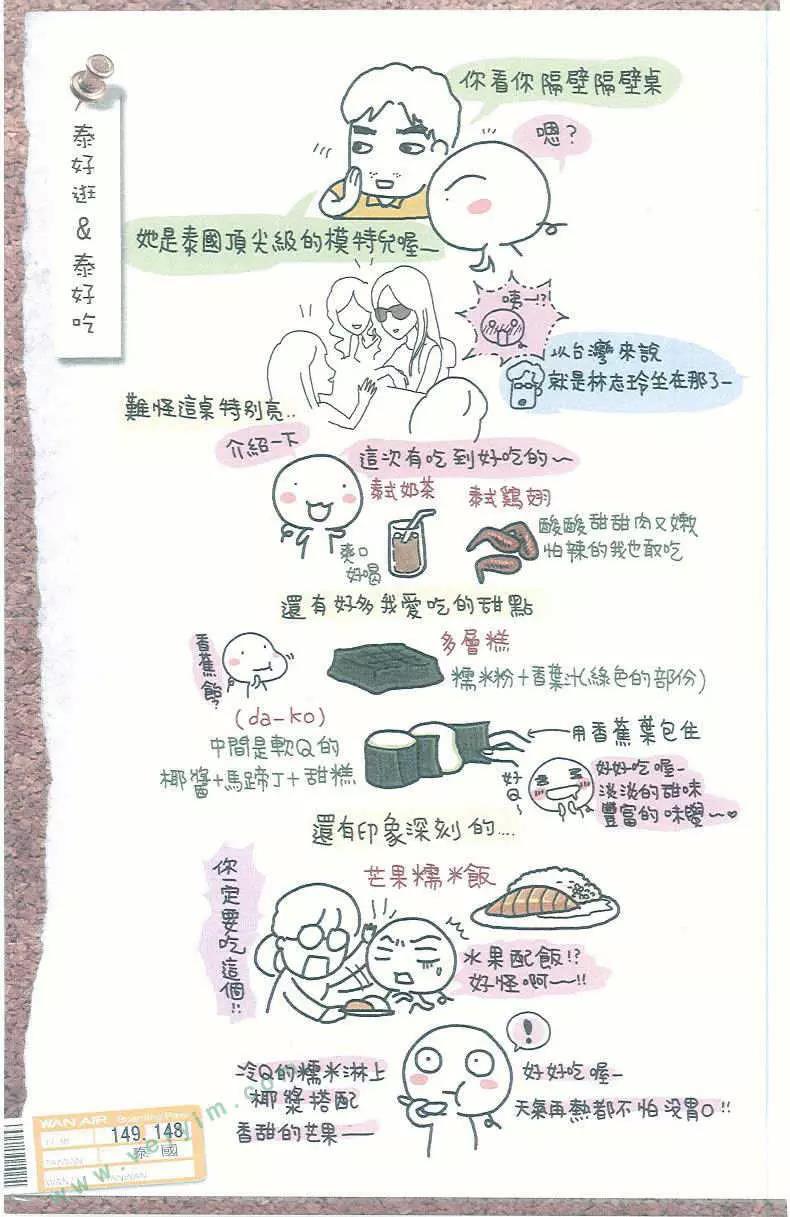 泰好逛&泰好吃
你看你隔壁隔壁桌
嗯?
她是泰國頂尖級的模特兒喔—
咦—!?
以台灣來說
就是林志玲坐在那了—
難怪這桌特別亮..
介紹一下
這次有吃到好吃的~
泰式奶茶
爽口
好喝
泰式雞翅
酸酸甜甜肉又嫩
怕辣的我也敢吃
還有好多我愛吃的甜點
香蕉飴?
多層糕
糯米粉+香葉汁(綠色的部份)
(da-ko)
中間是軟Q的
椰醬+馬蹄丁+甜糕
用香蕉葉包住
好Q~
好好吃喔—
淡淡的甜味
豐富的味覺~♥
還有印象深刻的....
芒果糯米飯
你一定要吃這個!!
水果配飯!?
好怪啊—!!
!
冷Q的糯米淋上
椰漿搭配
香甜的芒果——
好好吃喔—
天氣再熱都不怕沒胃口!!
WAN AIR Boarding Pass
149. 148
泰國
TAIWAN
WAN